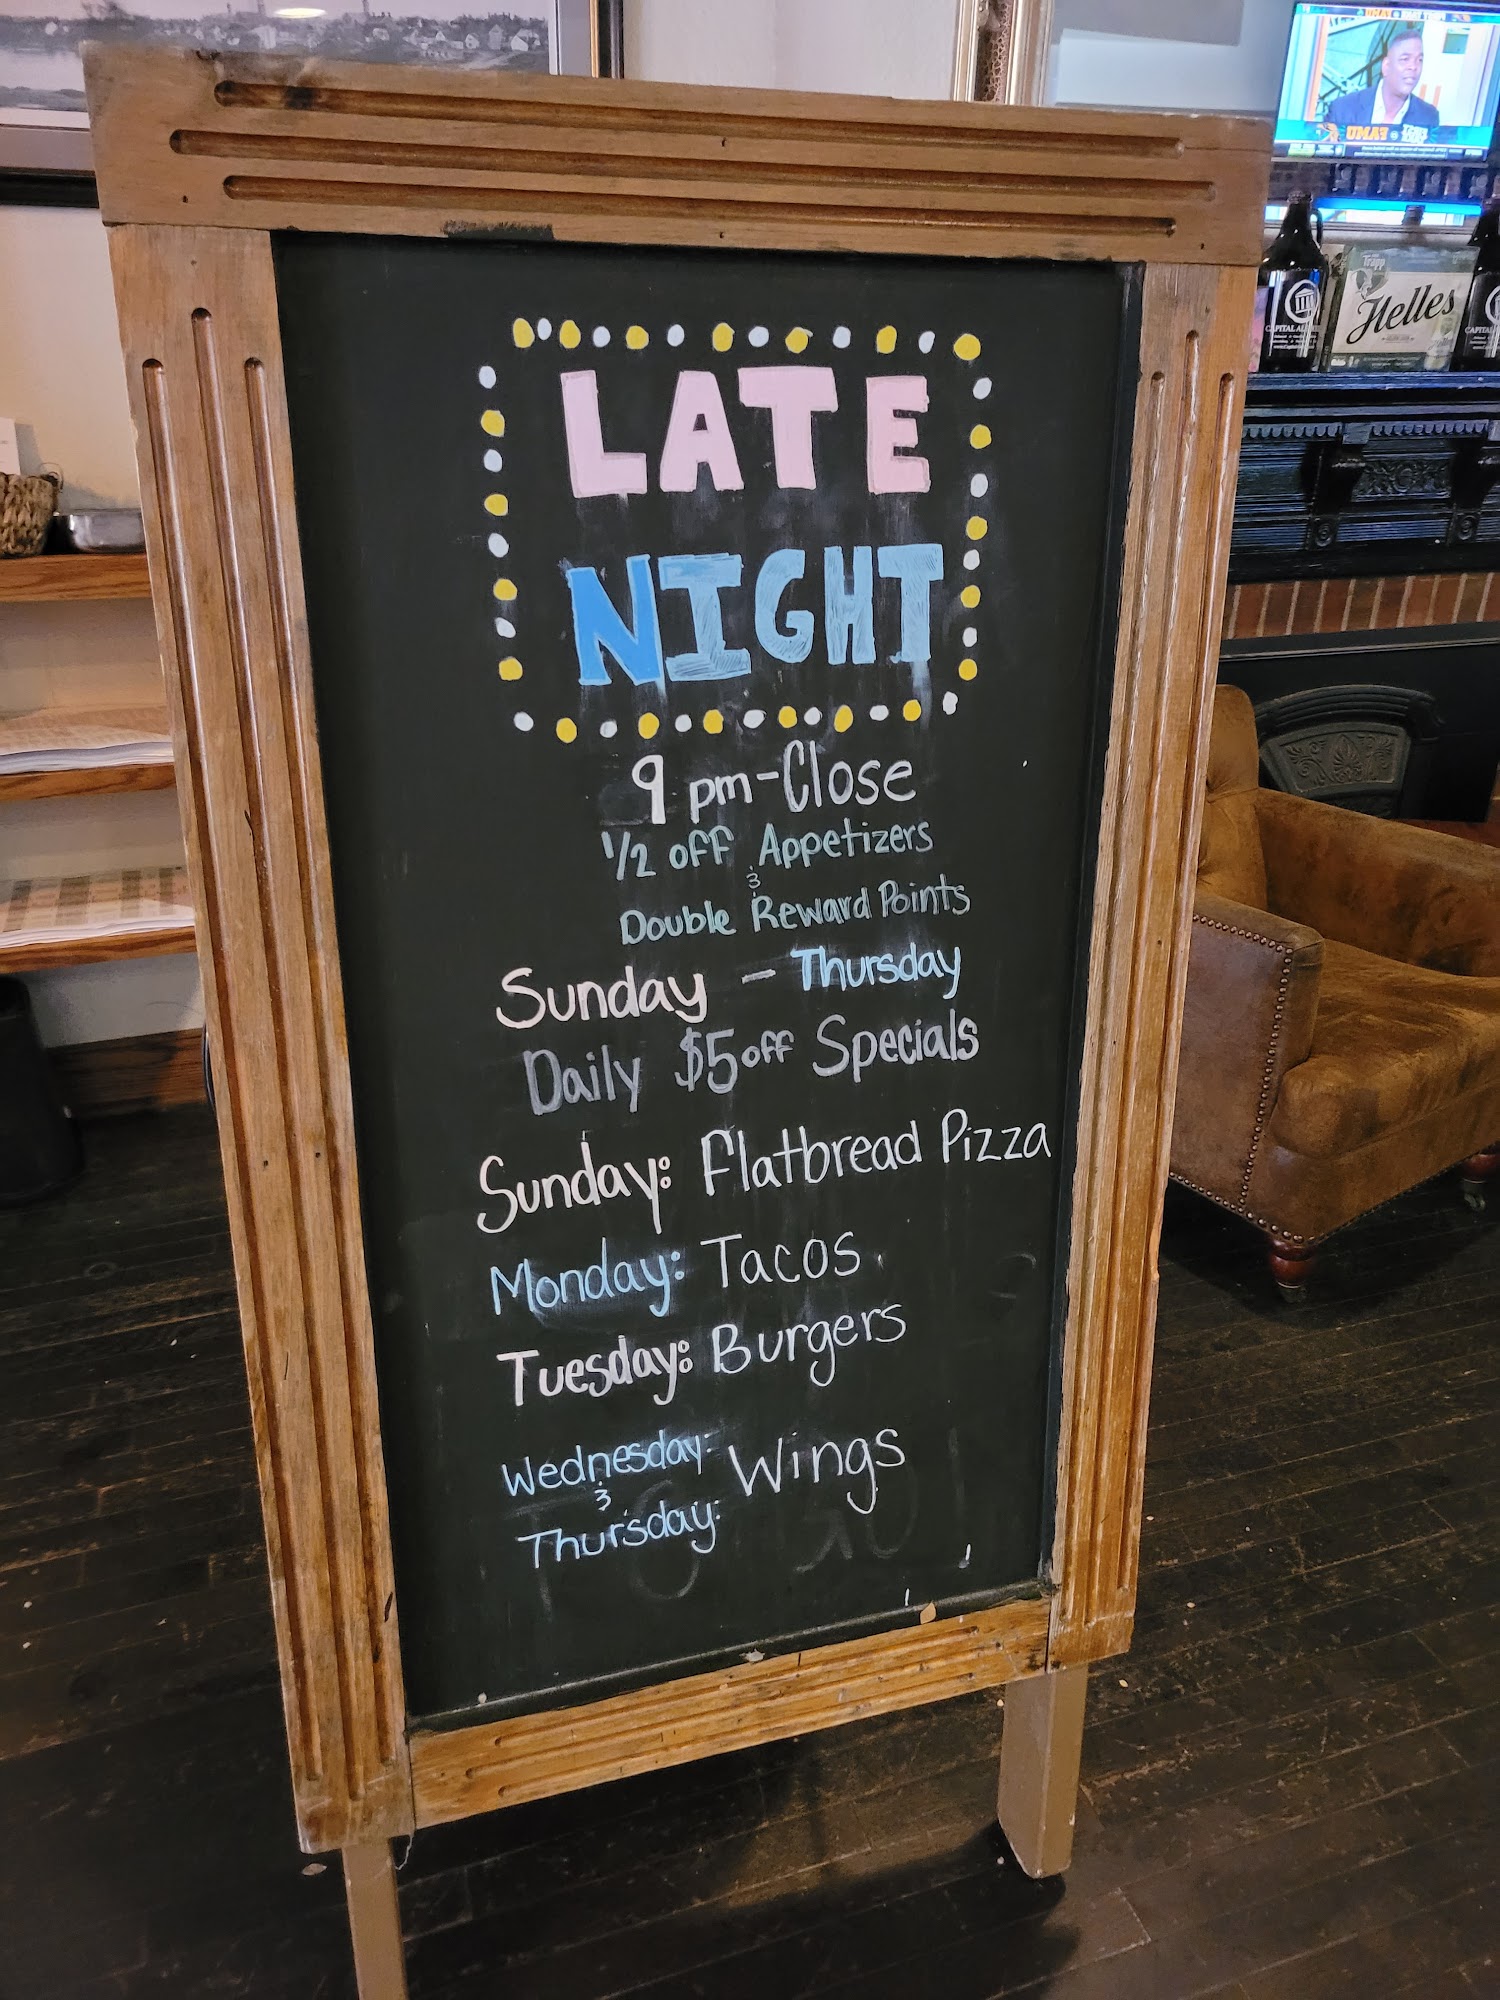 LATE
NIGHT
9 pm-Close
1/2 off Appetizers
&
Double Reward Points
Sunday - Thursday
Daily $5 off Specials
Sunday: Flatbread Pizza
Monday: Tacos
Tuesday: Burgers
Wednesday: Wings
&
Thursday:
TO GO!
Trapp
Helles
CAPITAL
CAPITAL